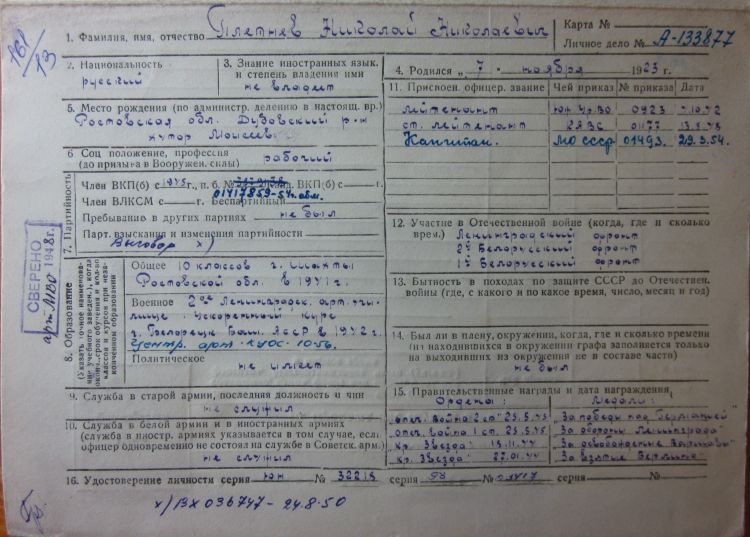 161/13
1. Фамилия, имя, отчество Плетнев Николай Николаевич
Карта №
Личное дело № А-133877
2. Национальность
русский
3. Знание иностранных язык. и степень владения ими
не владеет
4. Родился „7“ ноября 1923 г.
5. Место рождения (по администр. делению в настоящ. вр.)
Ростовская обл. Дубовский р-н
хутор Моисеев
6. Соц положение, профессия
(до призыва в Вооружен. силы) рабочий
7. Партийность
Член ВКП(б) с 1945 г., п. б. № канд. ВКП(б) с — г.
01417859-54г. обм.
Член ВЛКСМ с — г. Беспартийный
Пребывание в других партиях не был
Парт. взыскания и изменения партийности
Выговор х)
СВЕРЕНО
1948 г.
8. Образование
(Указать точное наименование учебного заведен., когда оконч., срок обучения и кол-во классов и курсов при незаконченном образовании
Общее 10 классов г. Шахты
Ростовской обл. в 1941 г.
Военное 2ое Ленинградск. арт. училище Ускоренный курс
г. Белорецк Баш. АССР в 1942 г.
Центр. арт. КУОС-10-56.
Политическое
не имеет
9. Служба в старой армии, последняя должность и чин
не служил
10. Служба в белой армии и в иностранных армиях
(служба в иностр. армиях указывается в том случае, если
офицер одновременно не состоял на службе в Советск. арм.)
не служил
11. Присвоен. офицер. звание Чей приказ № приказа Дата
лейтенант 0923
ст. лейтенант 0177
Капитан. МО СССР 01493. 29.3.54.
12. Участие в Отечественной войне (когда, где и сколько
врем.) Ленинградский фронт
2й Белорусский фронт
1й Белорусский фронт
13. Бытность в походах по защите СССР до Отечествен.
войны (где, с какого и по какое время, число, месяц и год)
14. Был ли в плену, окружении, когда, где и сколько времени
(из находившихся в окружении графа заполняется только
на выходивших из окружения не в составе части)
не был
15. Правительственные награды и дата награждения
Ордена: Медали:
"отеч. война 2 ст" "За победу над Германией"
"отеч. война 1 ст. "За оборону Ленинграда"
"Кр. Звезда" "За освобождение Варшавы"
"Кр. Звезда" "За взятие Берлина"
16. Удостоверение личности серия ЮН № 32218 серия № серия №
х) ВХ 036747 - 24.8.50